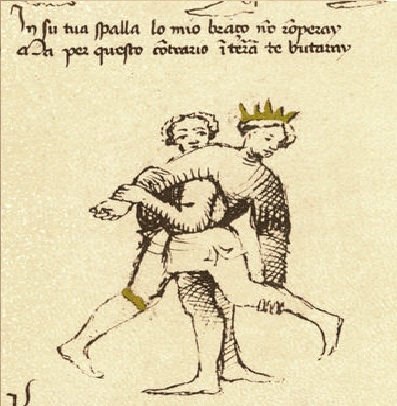 In su tua spalla lo mio braço nō rōperay
Ma per questo cōtrario ī terā te butaray